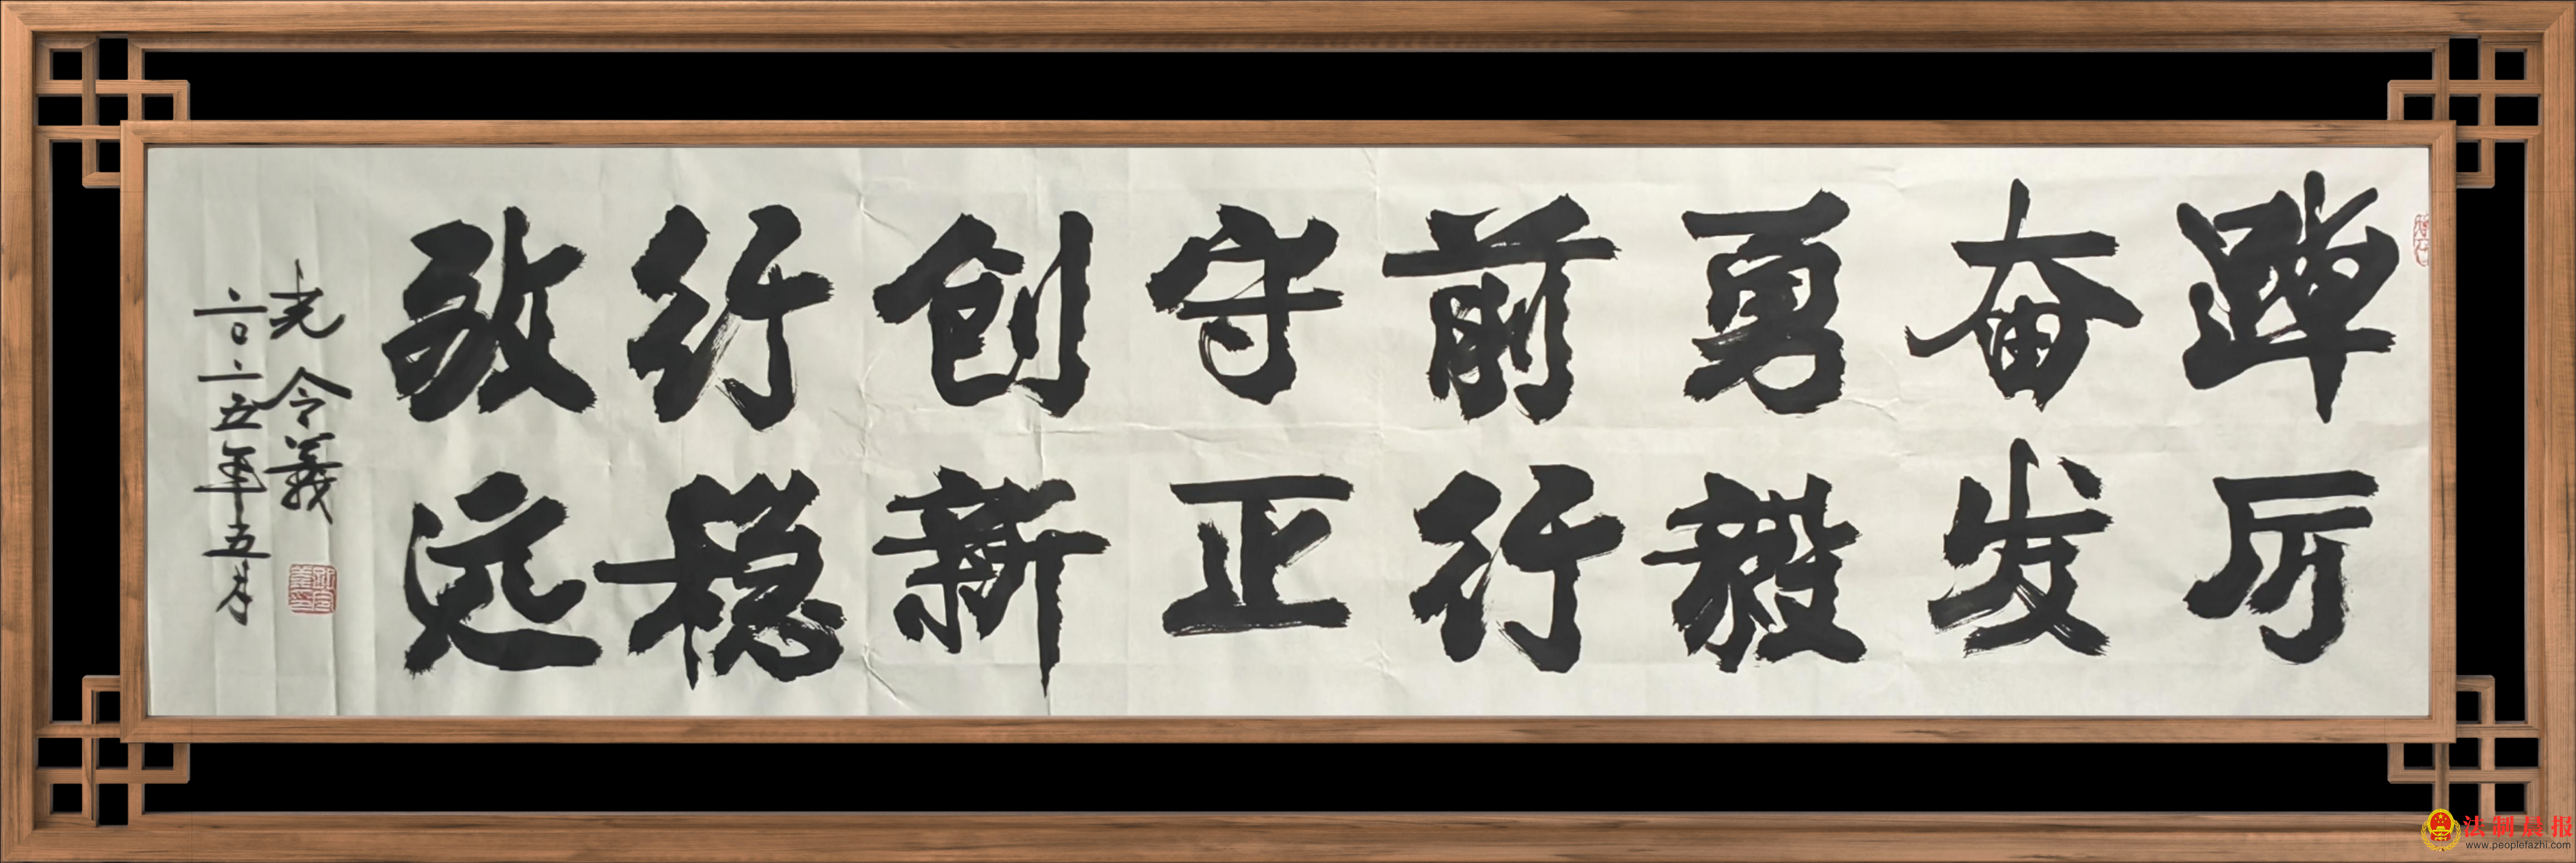 踔厉
奋发
勇毅
前行
守正
创新
行稳
致远
光 令義
二〇二五年五月
法制晨报
www.peoplefazhi.com